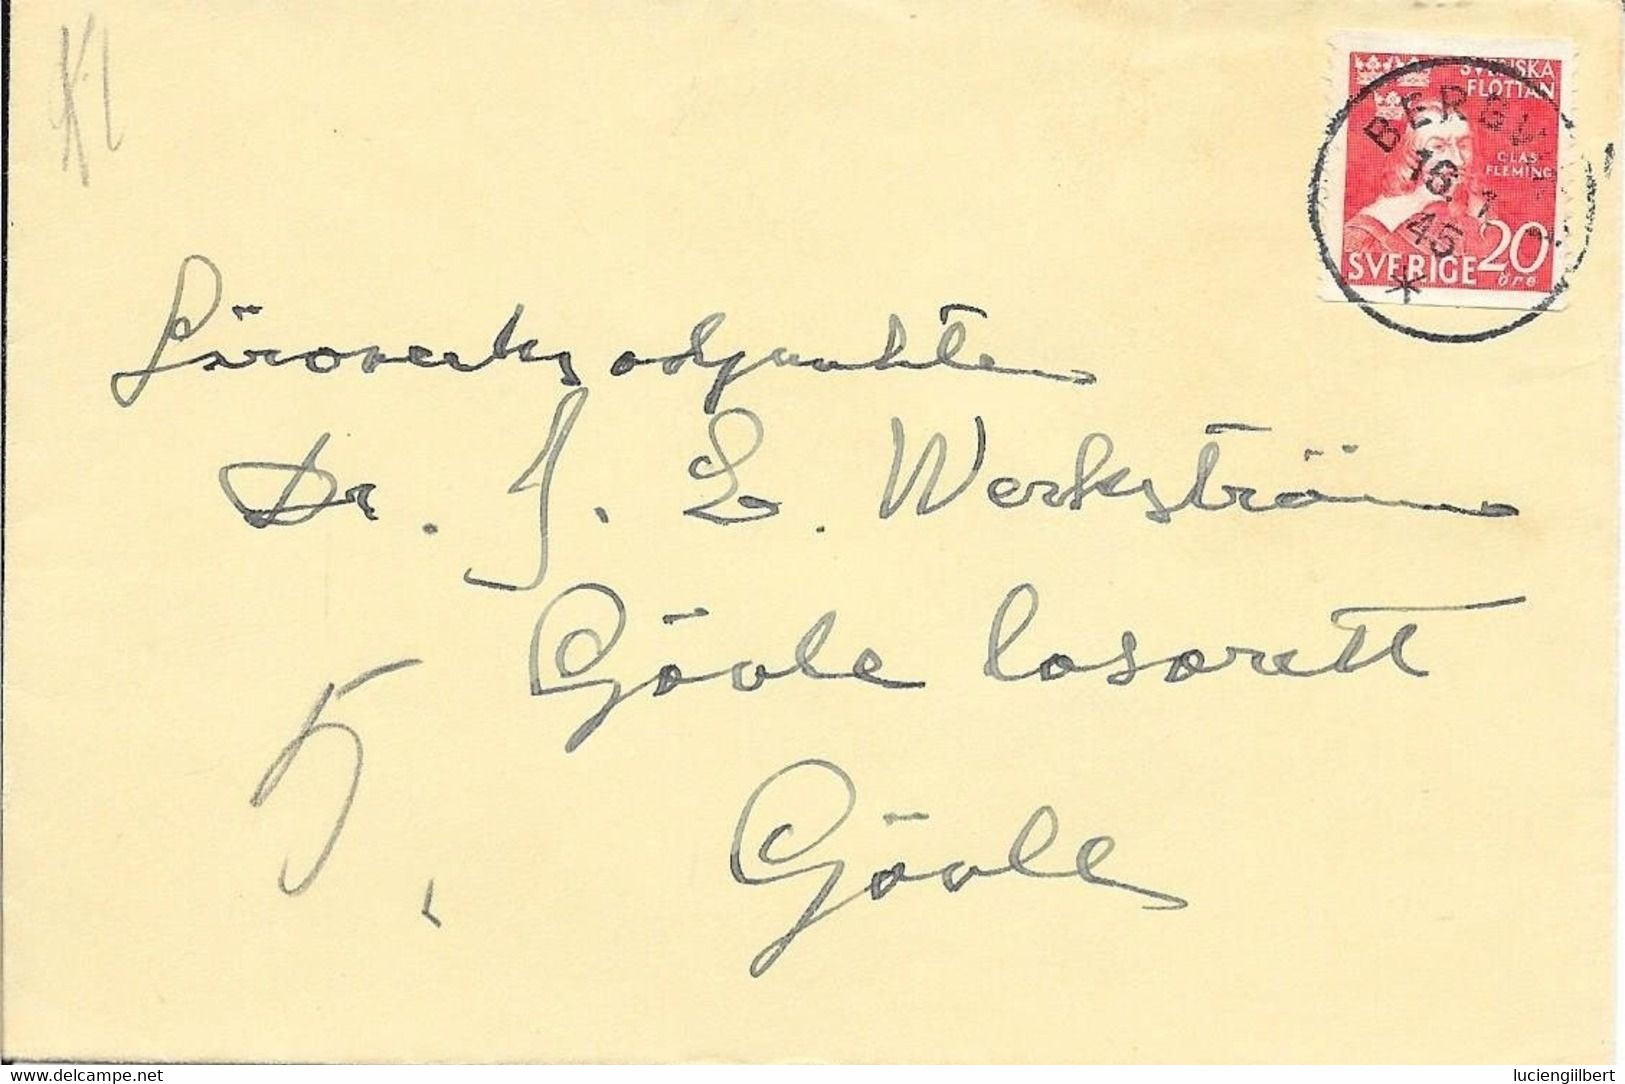 Kl
SVENSKA
FLOTTAN
CLAS
FLEMING
SVERIGE 20
öre
16. 1
45
Läroverksadjunkten
Dr. J. L. Werkström
Gävle lasarett
Gävle
www.delcampe.net
luciengilbert